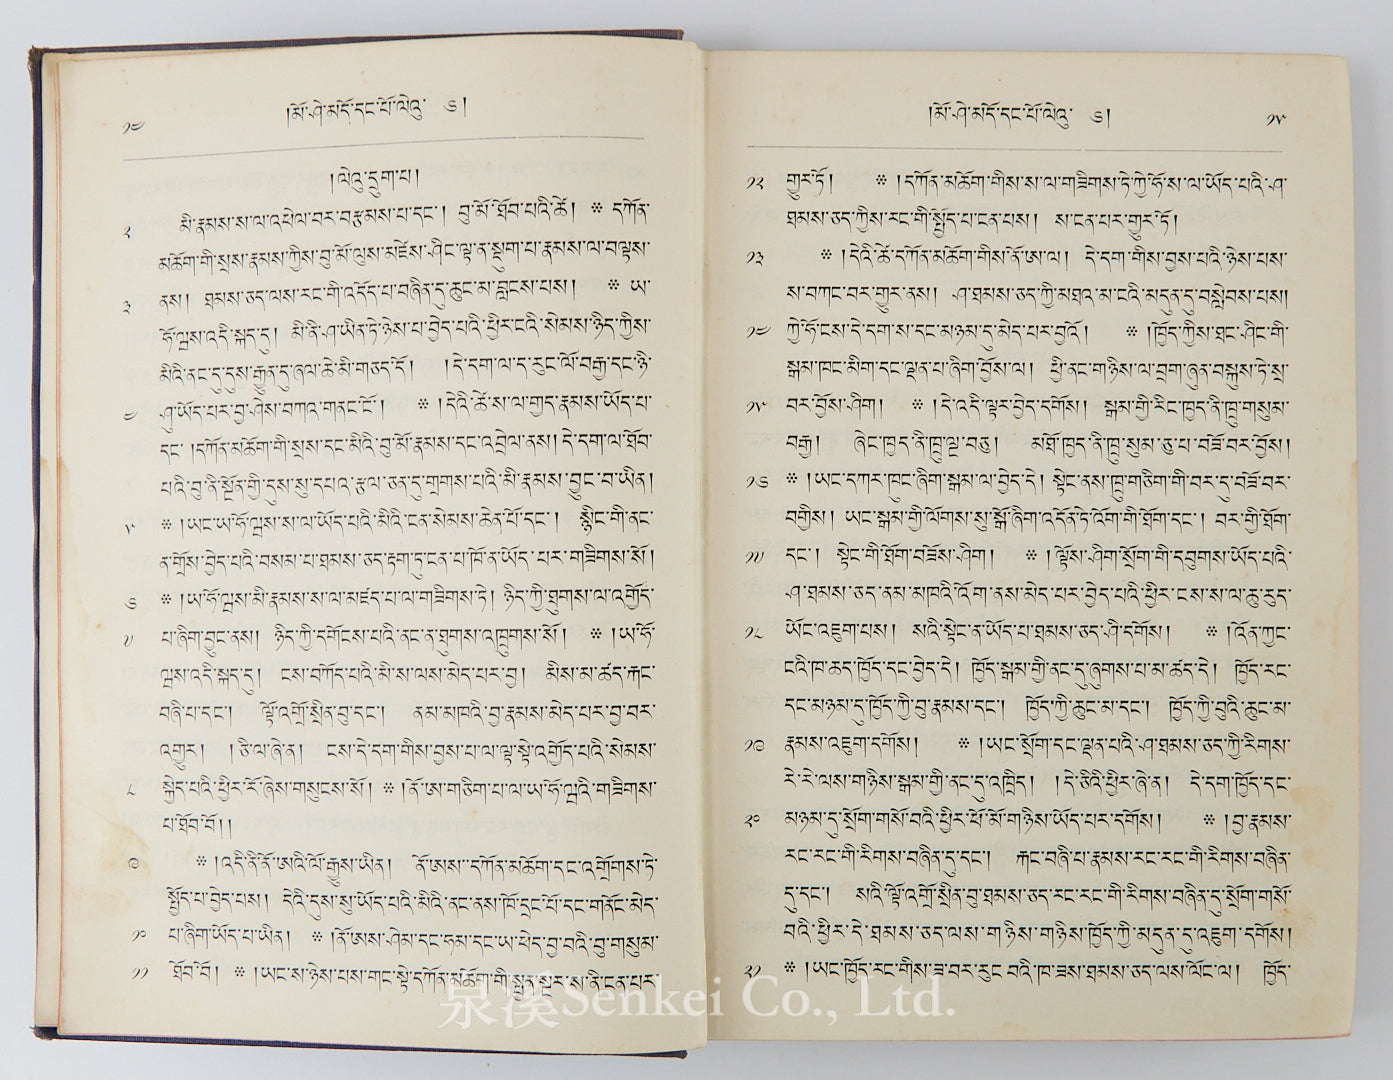 །མོ་ཤེ་མདོ་དང་པོ་ལེའུ་ ༦།
༡༤
།ལེའུ་དྲུག་པ།
༢ མི་རྣམས་ས་ལ་འཕེལ་བར་བརྩམས་པ་དང་། བུ་མོ་ཐོབ་པའི་ཚེ། ༜ དཀོན་
མཆོག་གི་སྲས་རྣམས་ཀྱིས་བུ་མོ་ལུས་མཛེས་ཤིང་ལྟ་ན་སྡུག་པ་རྣམས་ལ་བལྟས་
༣ ནས། ཐམས་ཅད་ལས་རང་གི་འདོད་པ་བཞིན་དུ་ཆུང་མ་བླངས་པས། ༜ ཡ་
ཧོ་ཝས་འདི་སྐད་དུ། མི་ནི་ཤ་ཡིན་ཏེ་ཉེས་པ་བྱེད་པའི་ཕྱིར་ངའི་སེམས་ཉིད་ཀྱིས་
མིའི་ནང་དུ་དུས་རྒྱུན་དུ་ཞལ་ཆེ་མི་གཅད་དོ། །དེ་དག་ལ་ད་རུང་ལོ་བརྒྱ་དང་ཉི་
༤ ཤུ་ཡོད་པར་བྱ་ཤེས་བཀའ་གནང་ངོ་། ༜ །དེའི་ཚེ་ས་ལ་གྱད་རྣམས་ཡོད་པ་
དང་ །དཀོན་མཆོག་གི་སྲས་དང་མིའི་བུ་མོ་རྣམས་དང་འབྲེལ་ནས། དེ་དག་ལ་ཐོབ་
པའི་བུ་ནི་སྔོན་གྱི་དུས་སུ་དཔའ་རྩལ་ཅན་དུ་གྲགས་པའི་མི་རྣམས་བྱུང་བ་ཡིན།
༥ ༜ །ཡང་ཡ་ཧོ་ཝས་ས་ལ་ཡོད་པའི་མིའི་ངན་སེམས་ཆེན་པོ་དང་། སྙིང་གི་ནང་
ན་གྲོས་བྱེད་པའི་བསམ་པ་ཐམས་ཅད་རྟག་ཏུ་ངན་པ་ཁོ་ན་ཡོད་ པར་གཟིགས་སོ།
༦ ༜ །ཡ་ཧོ་ཝས་མི་རྣམས་ས་ལ་མཛད་པ་ལ་གཟིགས་ཏེ། ཉིད་ཀྱི་ཐུགས་ལ་འགྱོད་
༧ པ་ཞིག་བྱུང་ནས། ཉིད་ཀྱི་དགོངས་པའི་ནང་ན་ཐུགས་འཁྲུགས་སོ། ༜ །ཡ་ཧོ་
ཝས་འདི་སྐད་དུ། ངས་བཀོད་པའི་མི་ས་ལས་མེད་པར་བྱ། མིས་མ་ཚད་རྐང་
བཞི་པ་དང་། ལྟོ་འགྲོ་སྲིན་བུ་དང་། ནམ་མཁའི་བྱ་རྣམས་མེད་པར་བྱ་བར་
འགྱུར། །ཅི་ལ་ཞེ་ན། ངས་དེ་དག་གིས་བྱས་པ་ལ་ལྟ་སྟེ་འགྱོད་པའི་སེམས་
༨ སྐྱེད་པའི་ཕྱིར་རོ་ཞེས་གསུངས་སོ། ༜ །ནོ་ཨ་གཅིག་པ་ལ་ཡ་ཧོ་ཝའི་གཟིགས་
པ་ཐོབ་བོ།།
༩ ༜ །འདི་ནི་ནོ་ཨའི་ལོ་རྒྱུས་ཡིན། ནོ་ཨས་དཀོན་མཆོག་དང་འགྲོགས་ཏེ་
སྤྱོད་པ་བྱེད་པས། དེའི་དུས་སུ་ཡོད་པའི་མིའི་ནང་ནས་ཁོ་དྲང་པོ་དང་གནོང་མེད་
༡༠ པ་ཞིག་ཡོད་པ་ཡིན། ༜ །ནོ་ཨས་ཤེམ་དང་ཧམ་དང་ཡ་ཕེད་བྱ་བའི་བུ་གསུམ་
༡༡ ཐོབ་བོ། ༜ །ཡང་ས་ཉེས་པས་གང་སྟེ་དཀོན་མཆོག་གི་སྤྱན་སྔར་ས་ནི་ངན་པར་
།མོ་ཤེ་མདོ་དང་པོ་ལེའུ་ ༦།
༡༥
༡༢ གྱུར་ཏོ། ༜ །དཀོན་མཆོག་གིས་ས་ལ་གཟིགས་ཏེ་ཀྱེ་ཧོ་ས་ལ་ཡོད་པའི་ཤ་
ཐམས་ཅད་ཀྱིས་རང་གི་སྤྱོད་པ་ངན་པས། ས་ངན་པར་གྱུར་ཏོ།
༡༣ ༜ །དེའི་ཚེ་དཀོན་མཆོག་གིས་ནོ་ཨ་ལ། དེ་དག་གིས་བྱས་པའི་ཉེས་པས་
ས་བཀང་བར་གྱུར་ནས། ཤ་ཐམས་ཅད་ཀྱི་མཐའ་མ་ངའི་མདུན་དུ་བསླེབས་པས།
༡༤ ཀྱེ་ཧོ་ངས་དེ་དག་ས་དང་མཉམ་དུ་མེད་པར་བྱའོ། ༜ །ཁྱོད་ཀྱིས་ཐང་ཤིང་གི་
སྒམ་ཁང་མིག་དང་ལྡན་པ་ཞིག་བྱོས་ལ། ཕྱི་ནང་གཉིས་ལ་བྲག་ཞུན་བསྐུས་ཏེ་སྲ་
༡༥ བར་བྱོས་ཤིག། ༜ །དེ་འདི་ལྟར་བྱེད་དགོས། སྒམ་གྱི་རིང་ཁྱད་ནི་ཁྲུ་གསུམ་
བརྒྱ། ཞེང་ཁྱད་ནི་ཁྲུ་ལྔ་བཅུ། མཐོ་ཁྱད་ནི་ཁྲུ་སུམ་ཅུ་པ་བཟོ་བར་བྱོས།
༡༦ ༜ །ཡང་དཀར་ཁུང་ཞིག་སྒམ་ལ་བྱེད་དེ། སྟེང་ནས་ཁྲུ་གཅིག་གི་བར་དུ་བཟོ་བར་
བགྱིས། ཡང་སྒམ་གྱི་ལོགས་སུ་སྒོ་ཞིག་འདོན་ཏེ་འོག་གི་ཐོག་དང་། བར་གྱི་ཐོག་
༡༧ དང་། སྟེང་གི་ཐོག་བཟོས་ཤིག། ༜ །ལྟོས་ཤིག་སྲོག་གི་དབུགས་ཡོད་པའི་
ཤ་ཐམས་ཅད་ནམ་མཁའི་འོག་ནས་མེད་པར་བྱེད་པའི་ཕྱིར་ངས་ས་ལ་ཆུ་རུད་
༡༨ ཡོང་འཇུག་པས། སའི་སྟེང་ན་ཡོད་པ་ཐམས་ཅད་ཤི་དགོས། ༜ །འོན་ཀྱང་
ངའི་ཁ་ཆད་ཁྱོད་དང་བྱེད་དེ། ཁྱོད་སྒམ་གྱི་ནང་དུ་ཞུགས་པ་མ་ཚད་དེ། ཁྱོད་རང་
དང་མཉམ་དུ་ཁྱོད་ཀྱི་བུ་རྣམས་དང་། ཁྱོད་ཀྱི་ཆུང་མ་དང་། ཁྱོད་ཀྱི་བུའི་ཆུང་མ་
༡༩ རྣམས་འཇུག་དགོས། ༜ །ཡང་སྲོག་དང་ལྡན་པའི་ཤ་ཐམས་ཅད་ཀྱི་རིགས་
རེ་རེ་ལས་གཉིས་སྒམ་གྱི་ནང་དུ་འཁྲིད། །དེ་ཅིའི་ཕྱིར་ཞེ་ན། དེ་དག་ཁྱོད་དང་
༢༠ མཉམ་དུ་སྲོག་གསོ་བའི་ཕྱིར་ཕོ་མོ་གཉིས་ཡོད་པར་དགོས། ༜ །བྱ་རྣམས་
རང་རང་གི་རིགས་བཞིན་དུ་དང་། རྐང་བཞི་པ་རྣམས་རང་རང་གི་རིགས་བཞིན་
དུ་དང་། སའི་ལྟོ་འགྲོ་སྲིན་བུ་ཐམས་ཅད་རང་རང་གི་རིགས་བཞིན་དུ་སྲོག་གསོ་
བའི་ཕྱིར་དེ་ཐམས་ཅད་ལས་གཉིས་གཉིས་ཁྱོད་ཀྱི་མདུན་དུ་འཇུག་དགོས།
༢༡ ༜ །ཡང་ཁྱོད་རང་གིས་ཟ་བར་རུང་བའི་ཁ་ཟས་ཐམས་ཅད་ལས་ལོང་ལ། ཁྱོད་
泉溪Senkei Co., Ltd.